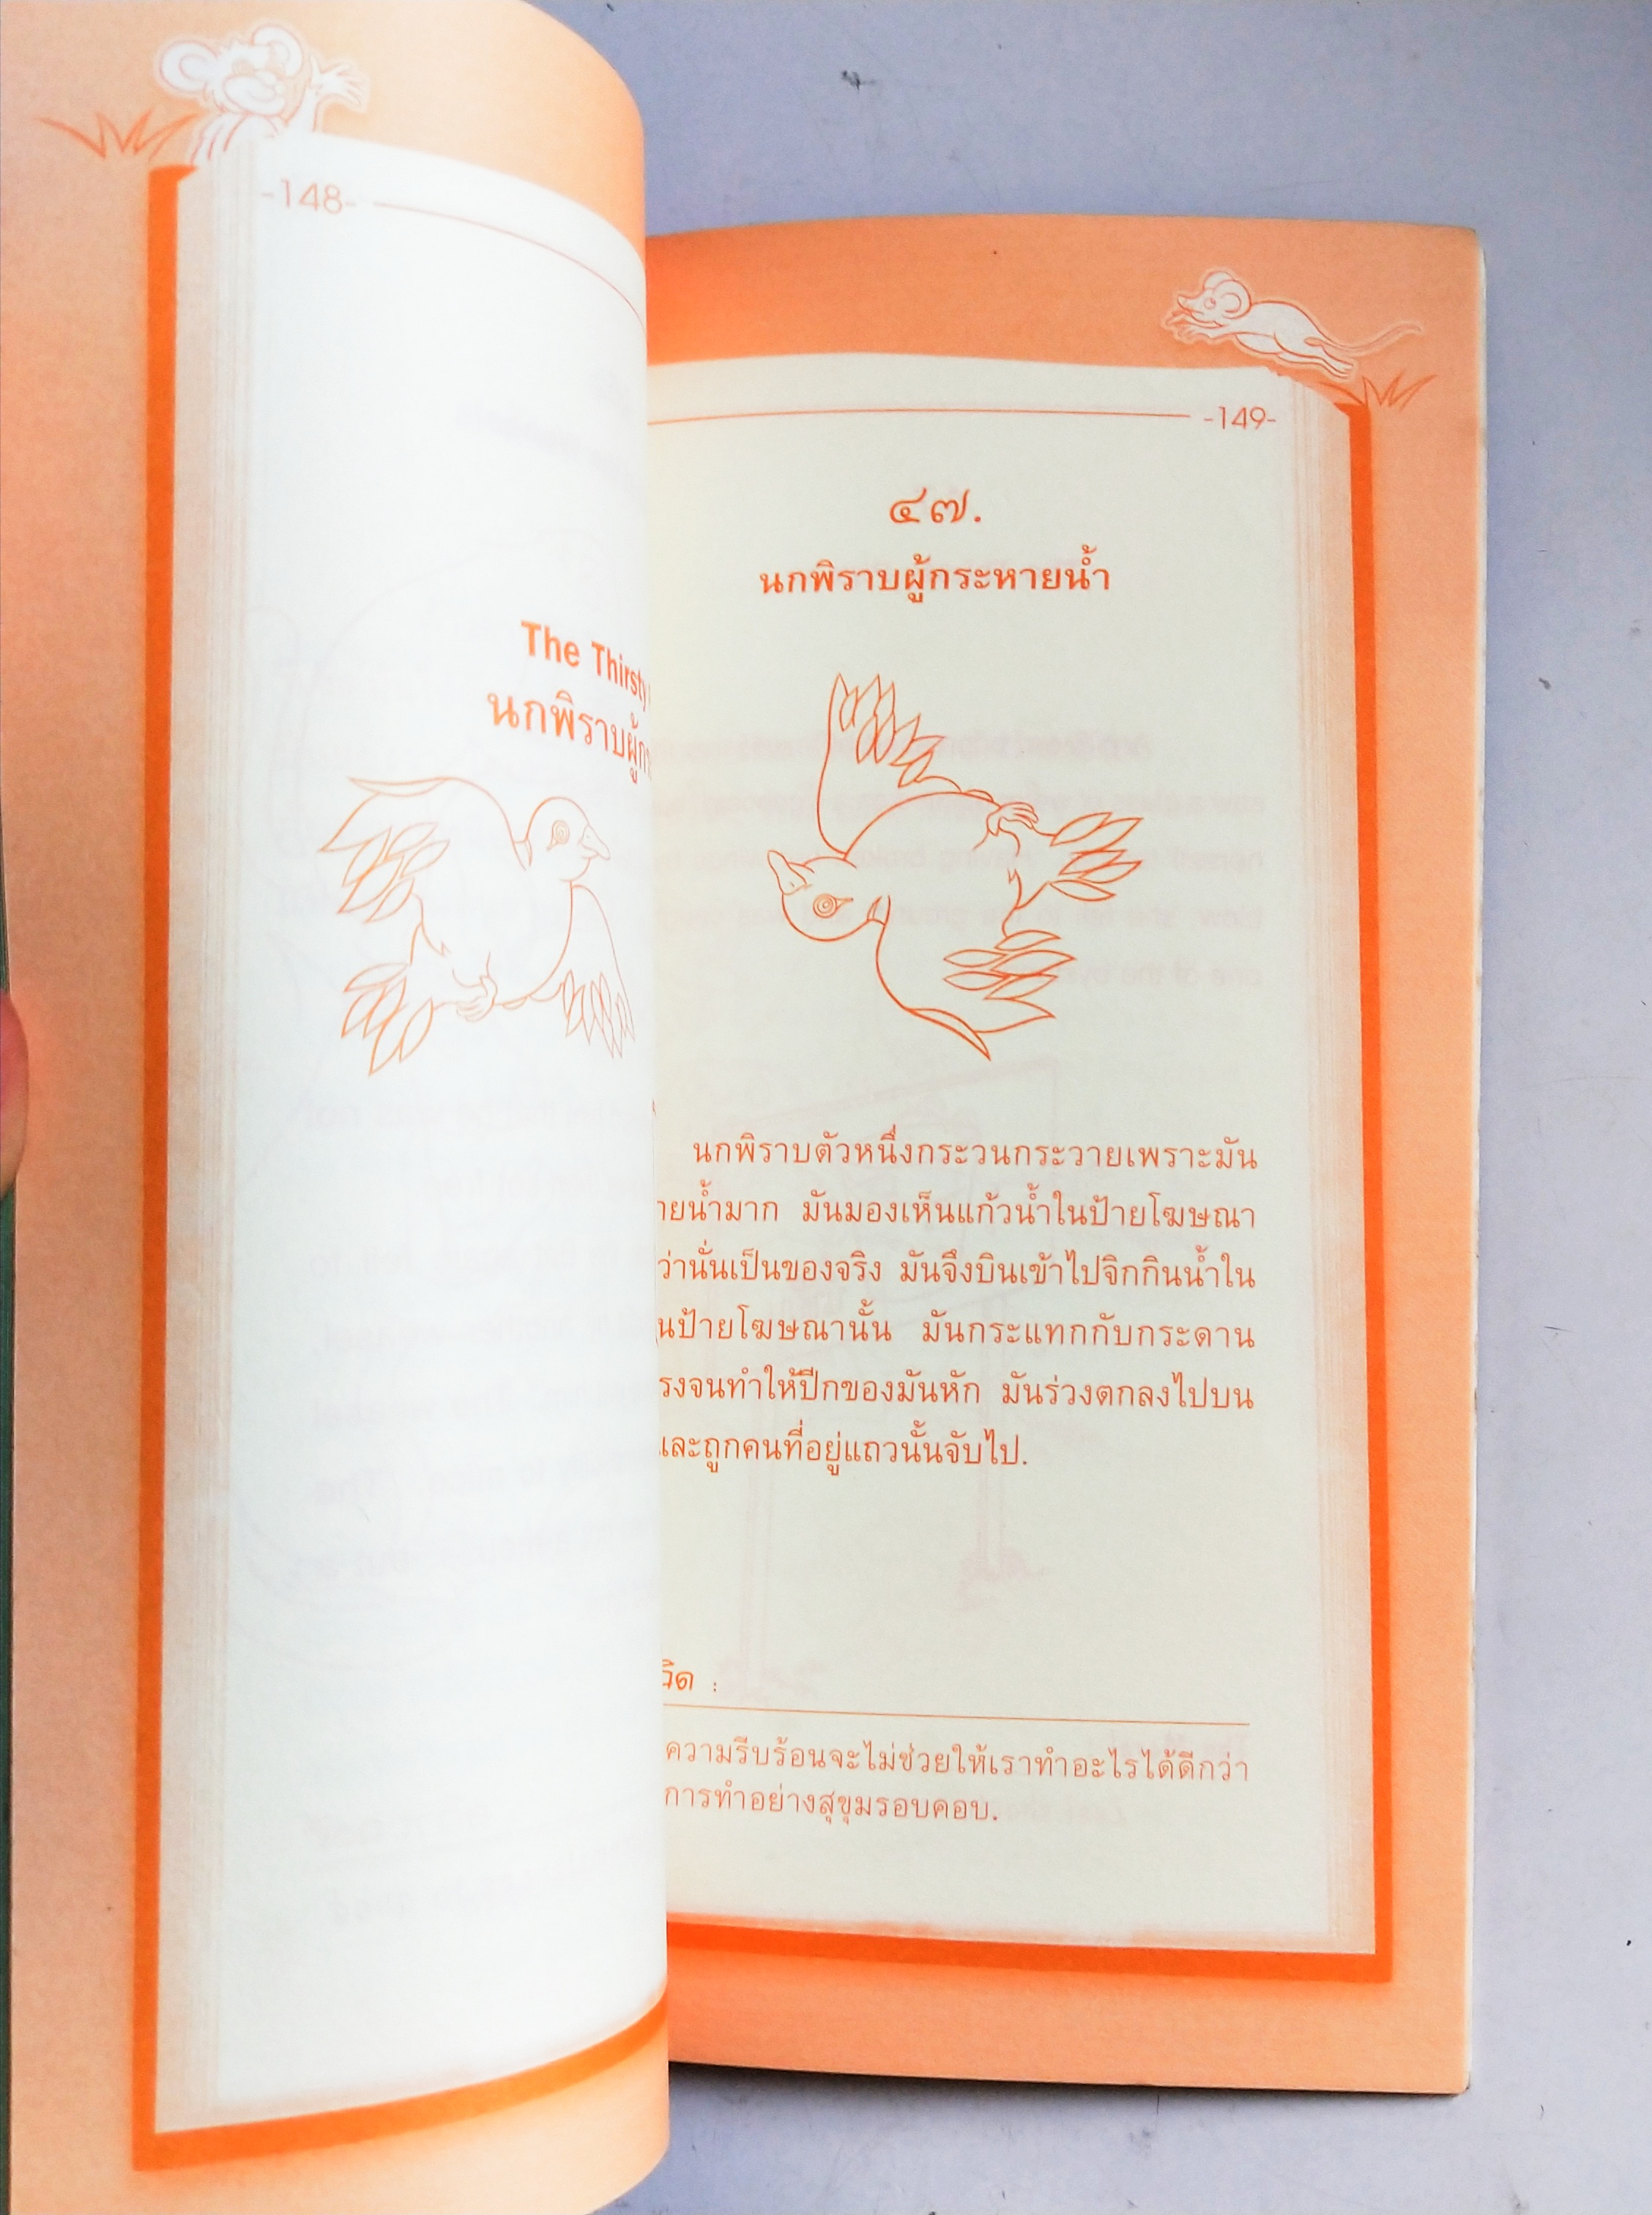 -148-
The Thirsty
นกพิราบผู้
-149-
๔๗.
นกพิราบผู้กระหายน้ำ
นกพิราบตัวหนึ่งกระวนกระวายเพราะมัน
ายน้ำมาก มันมองเห็นแก้วน้ำในป้ายโฆษณา
ว่านั่นเป็นของจริง มันจึงบินเข้าไปจิกกินน้ำใน
นป้ายโฆษณานั้น มันกระแทกกับกระดาน
รงจนทำให้ปีกของมันหัก มันร่วงตกลงไปบน
และถูกคนที่อยู่แถวนั้นจับไป.
คิด :
ความรีบร้อนจะไม่ช่วยให้เราทำอะไรได้ดีกว่า
การทำอย่างสุขุมรอบคอบ.